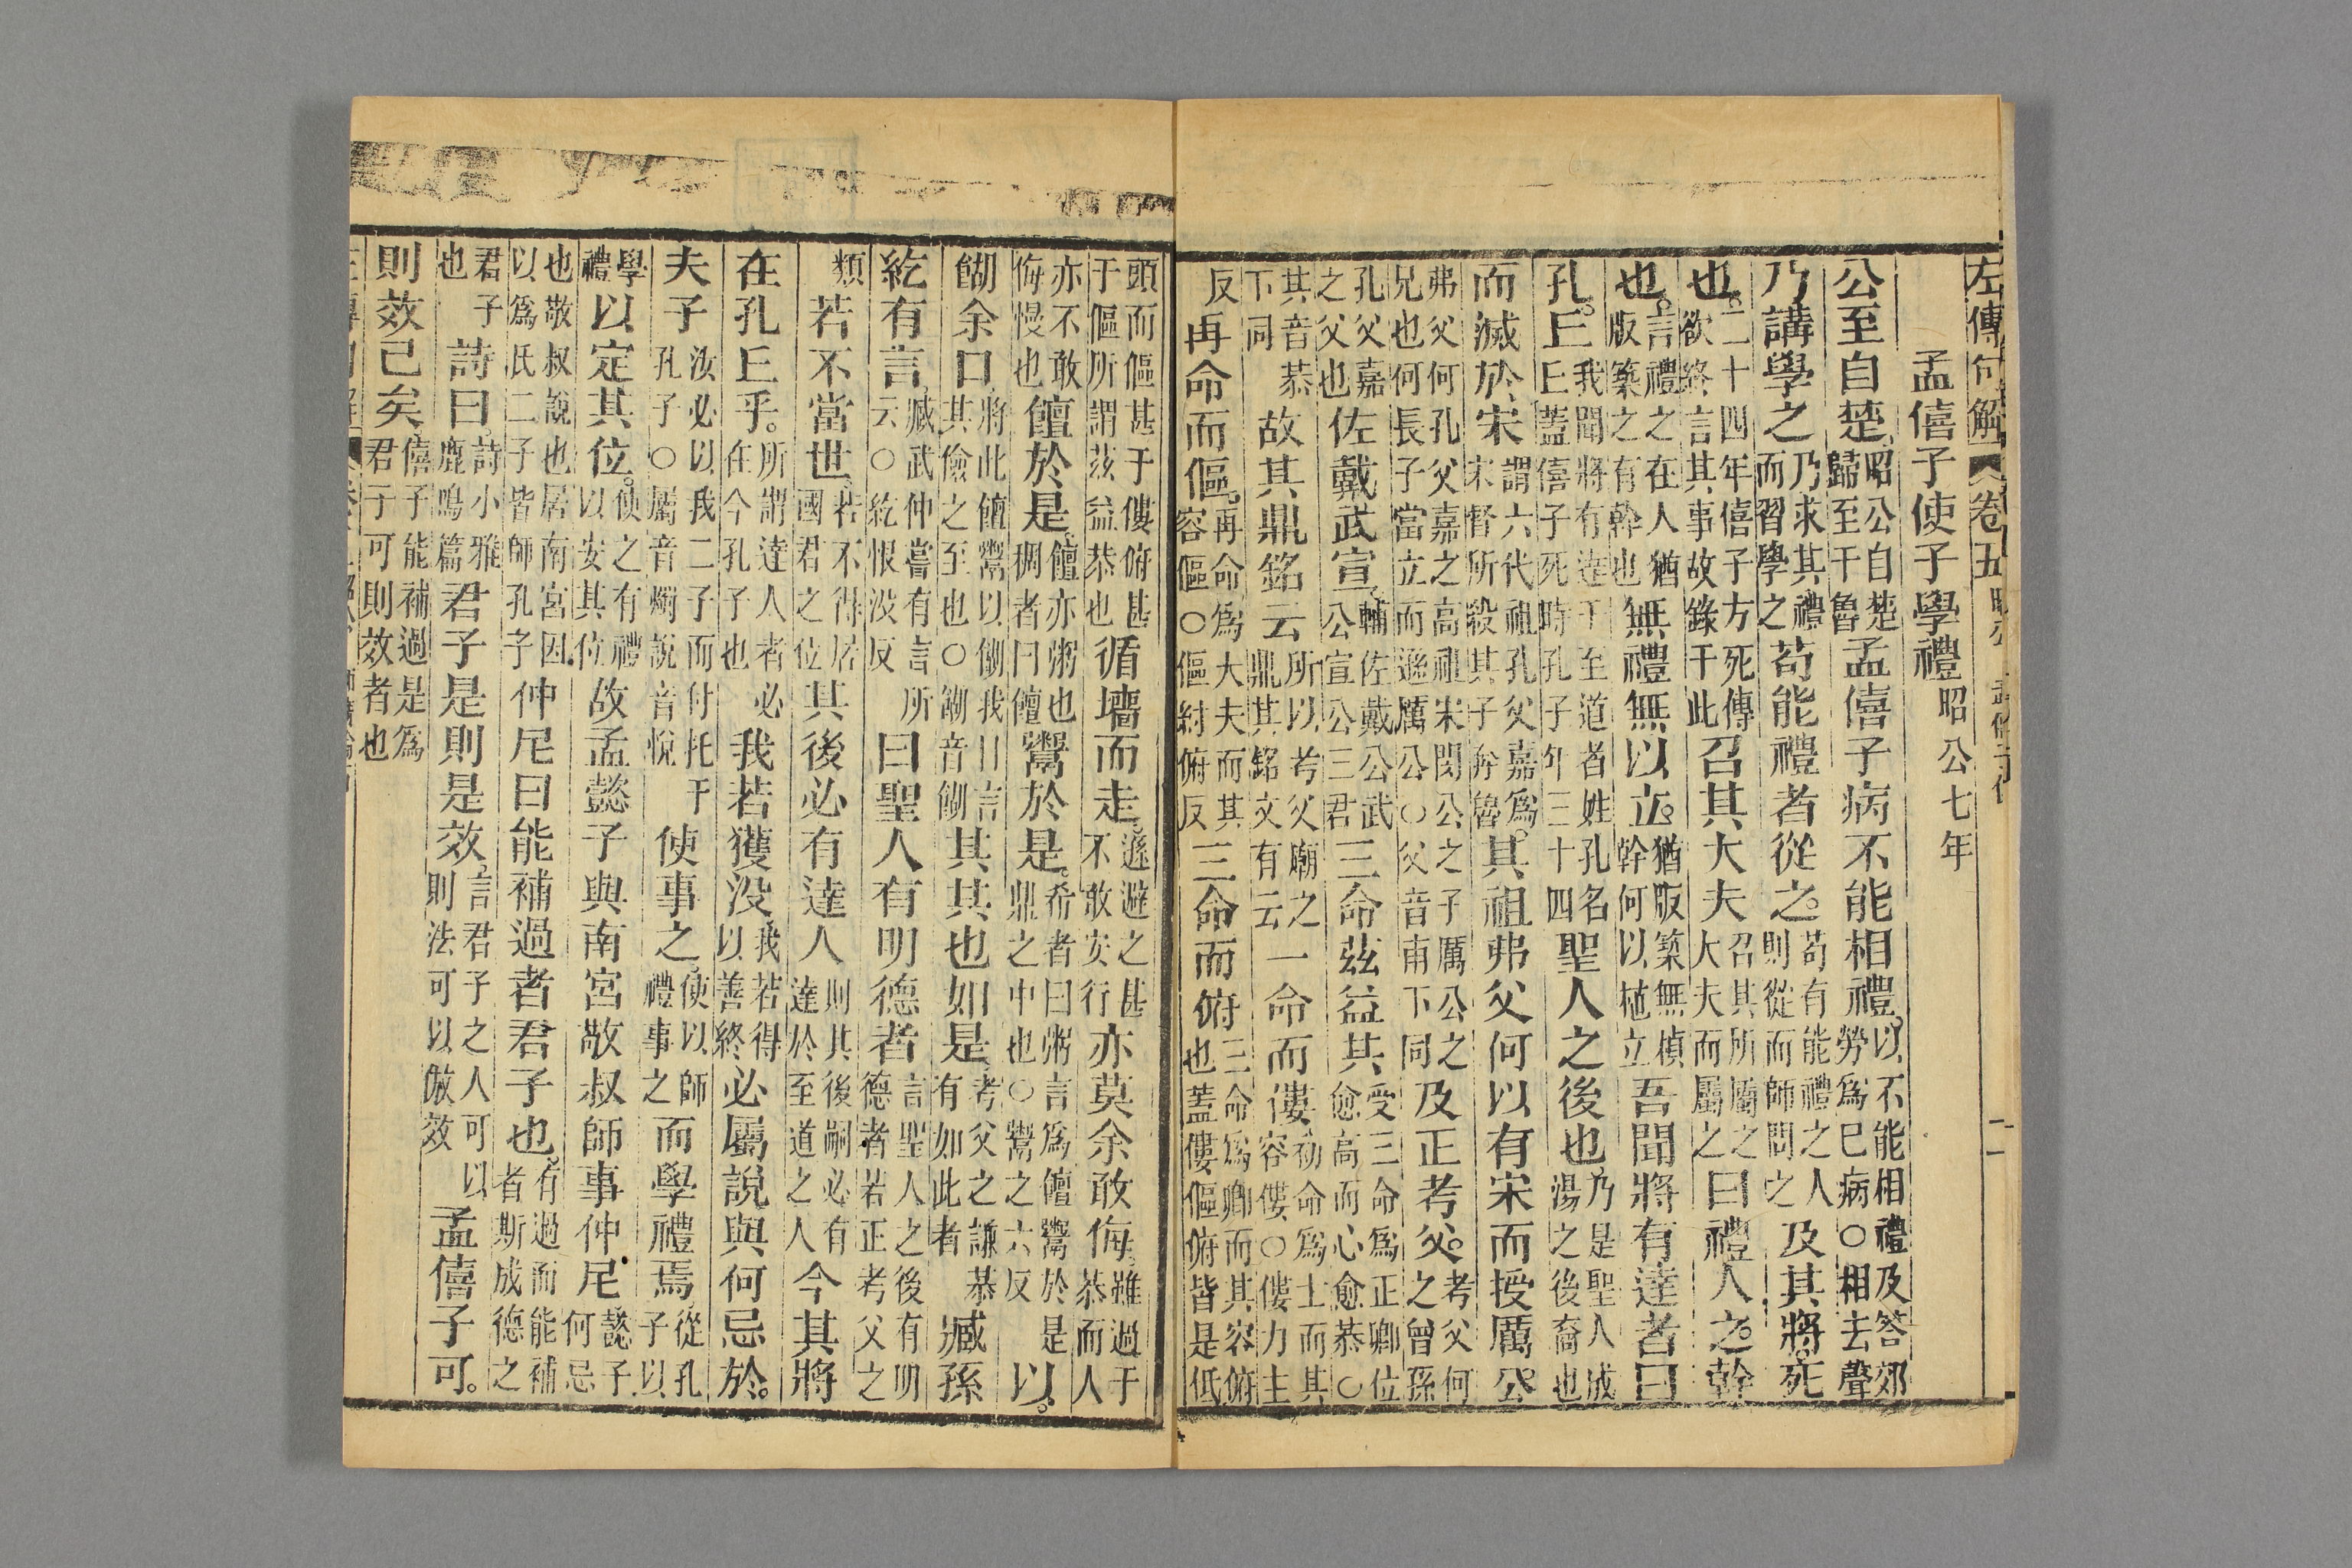 左傳句解 卷五 昭公 孟僖子使 二
孟僖子使子學禮 昭公七年
公至自楚 昭公自楚歸至于魯 孟僖子病不能相禮 以不能相禮及答郊勞爲已病○相去聲
乃講學之 乃求其禮而習學之 苟能禮者從之 苟有能禮之人則從而師問之 及其將死
也 二十四年僖子方死傳欲終言其事故錄于此 召其大夫 召其所屬之大夫而屬之 曰禮人之幹
也 言禮之在人猶版築之有幹也 無禮無以立 猶版築無楨幹何以植立 吾聞將有達者曰
孔丘 我聞將有達于至道者姓孔名丘蓋僖子死時孔子年三十四 聖人之後也 乃是聖人成湯之後裔也
而滅於宋 謂六代祖孔父嘉爲宋督所殺其子奔魯 其祖弗父何以有宋而授厲公
弗父何孔父嘉之高祖宋閔公之子厲公之兄也何長子當立而遜厲公○父音甫下同 及正考父 考父何之曾孫
孔父嘉之父也 佐戴武宣 輔佐戴公武公宣公三君 三命茲益其 受三命爲正卿位愈高而心愈恭○
其音恭下同 故其鼎銘云 所以考父廟之鼎其銘文有云 一命而僂 初命爲士而其容僂○僂力主
反 再命而傴 再命爲大夫而其容傴○傴紆俯反 三命而俯 三命爲卿而其容俯也蓋僂傴俯皆是低
頭而傴甚于僂俯甚于傴所謂茲益恭也 循墻而走 遜避之甚不敢安行 亦莫余敢侮 雖過于恭而人
亦不敢侮慢也 饘於是 饘亦粥也稠者曰饘 鬻於是 希者曰粥言爲饘鬻於是鼎之中也○鬻之六反 以
餬余口 將此饘鬻以餬我口言其儉之至也○餬音餬 其其也如是 考父之謙恭有如此者 臧孫
紇有言 臧武仲嘗有言所云○紇恨没反 曰聖人有明德者 言聖人之後有明德者若正考父之
類 若不當世 若不得居國君之位 其後必有達人 則其後嗣必有達於至道之人 今其將
在孔丘乎 所謂達人者必在今孔子也 我若獲没 我若得以善終 必屬說與何忌於
夫子 汝必以我二子而付托于孔子○屬音燭說音悅 使事之 使以師禮事之 而學禮焉 從孔子以
學禮 以定其位 使之有禮以安其位 故孟懿子與南宮敬叔師事仲尼 懿子何忌
也敬叔說也居南宮因以爲氏二子皆師孔子 仲尼曰能補過者君子也 有過而能補者斯成德之
君子也 詩曰 詩小雅鹿鳴篇 君子是則是效 言君子之人可以則法可以倣效 孟僖子可
則效已矣 僖子能補過是爲君子可則效者也